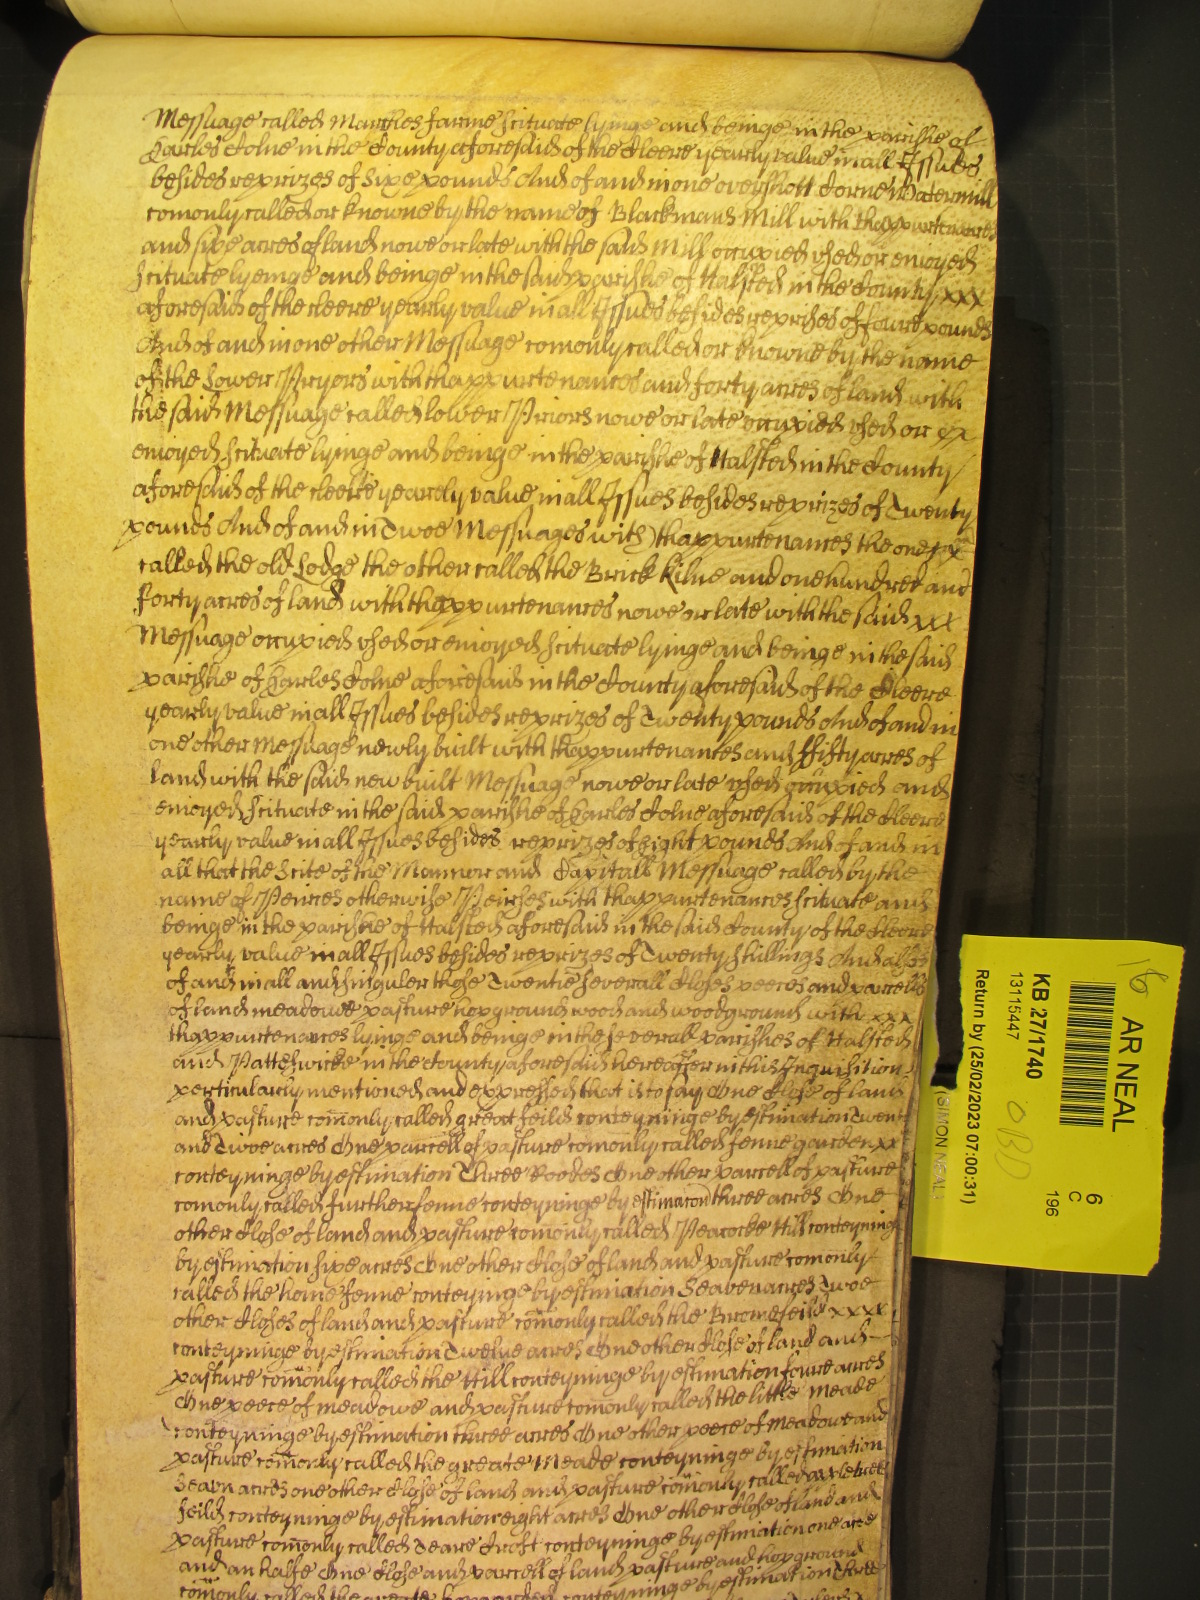 Messuage called Marches farme scituate lyinge and beinge in the parishe of
Earles Colne in the County aforesaid of the Cleere yearly value in all Issues
besides reprizes of Sixe pounds And of and in one overshott Corne Watermill
comonly called or knowne by the name of Blackmans Mill with thappurtenances
and sixe acres of land nowe or late with the said Mill occupied vsed or enioyed
scituate lyeinge and beinge in the said parishe of Halsted in the County xxx
aforesaid of the cleere yearly value in all Issues besides reprises of foure pounds
And of and in one other Messuage comonly called or knowne by the name
of the Lower Pryors with thappurtenances and forty acres of land with
the said Messuage called lower Priors nowe or late occupied vsed or xx
enioyed scituate lyinge and beinge in the parishe of Halsted in the County
aforesaid of the cleere yearely value in all Issues besides reprizes of Twenty
pounds And of and in Twoe Messuages with thappurtenances the one xx
called the old Lodge the other called the Brick Kilne and one hundred and
forty acres of land with thappurtenances nowe or late with the said xxx
Messuage occupied vsed or enioyed scituate lyinge and beinge in the said
parishe of Earles Colne aforesaid in the County aforesaid of the Cleere
yearly value in all Issues besides reprizes of Twenty pounds And of and in
one other Messuage newly built with thappurtenances and ffifty acres of
land with the said new built Messuage nowe or late vsed occupied and
enioyed scituate in the said parishe of Earles Colne aforesaid of the Cleere
yearly value in all Issues besides reprizes of Eight pounds And of and in
all that the Scite of the Mannor and Capitall Messuage called by the
name of Peirces otherwise Peirses with thappurtenances scituate and
beinge in the parishe of Halsted aforesaid in the said County of the Cleere
yearly value in all Issues besides reprizes of Twenty shillings And alsoe
of and in all and singuler those Twentie severall Closes peeces and parcells
of land meadowe pasture hopground wood and woodground with xxx
thappurtenances lyinge and beinge in the severall parishes of Halsted
and Patteswicke in the County aforesaid hereafter in this Inquisition
perticularly mentioned and expressed that is to say One Close of land
and pasture comonly called great feild conteyninge by estimation Twenty
and Twoe acres One parcell of pasture comonly called fenne garden xx
conteyninge by estimation Three Roodes One other parcell of pasture
comonly called further fenne conteyninge by estimacon three acres One
other Close of land and pasture comonly called Peacocke Hill conteyning
by estimation sixe acres One other Close of land and pasture comonly
called the home fenne conteyninge by estimation Seaven acres Twoe
other Closes of land and pasture comonly called the Bromefeild xxxx
conteyninge by estimation Twelve acres One other Close of land and
pasture comonly called the Hill conteyninge by estimation foure acres
One peece of meadowe and pasture comonly called the little meade
conteyninge by estimation three acres One other peece of Meadowe and
pasture comonly called the greate Meade conteyninge by estimation
Seavn acres one other Close of land and pasture comonly called
feild conteyninge by estimation eight acres One other Close of land and
pasture comonly called Croft conteyninge by estimation one acre
and an halfe One Close and parcell of land pasture and hopground
comonly called the greate conteyninge by estimation Three
16
AR NEAL
KB 27/1740
13115447
Return by (25/02/2023 07:00:31)
6
C
196
OBD
(SIMON NEAL)